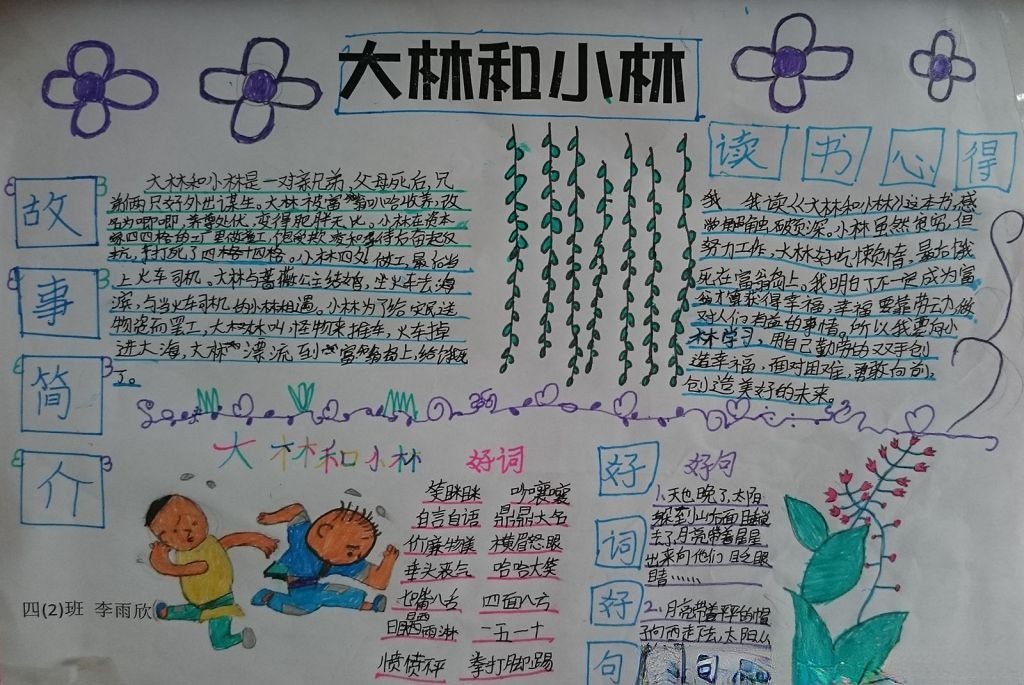 大林和小林
故事简介
大林和小林是一对亲兄弟，父母死后，兄
弟两只好外出谋生。大林被富翁叭哈收养，改
名为唧唧，养尊处优，变得肥胖无比。小林在资本
家四四格的工厂里做童工，饱受欺凌和虐待后奋起反
抗，打死了四格
小林四处做工最后当
上火车司机。大林与蔷薇公主结婚，坐火车去海
滨，与当火车司机的小林相遇。小林为了给灾民送
物资而罢工，大林叫怪物来推车，火车掉
进大海，大林漂流到富翁岛上，给饿死
了。
读书心得
我读《大林和小林》这本书，感
触破深。小林虽然贫穷，但
努力工作，大林好吃懒惰，最后饿
死在富翁岛上。我明白了不一定成为富
翁才算获得幸福，幸福要靠劳动，做
对人们有益的事情。所以我要向小
林学习，用自己勤劳的双手创
造幸福，面对困难，勇敢向前，
创造美好的未来。
大林和小林
好词
笑眯眯 吵嚷嚷
自言自语 鼎鼎大名
价廉物美 横眉怒眼
垂头丧气 哈哈大笑
七嘴八舌 四面八方
日晒雨淋 一五一十
愤愤不平 拳打脚踢
好词好句
好句
1、天也晚了，太阳
躲到山后面睡觉
去了，月亮带着星星
出来向他们眨眼
睛……
2、月亮带着
向西走去，太阳从
四(2)班 李雨欣